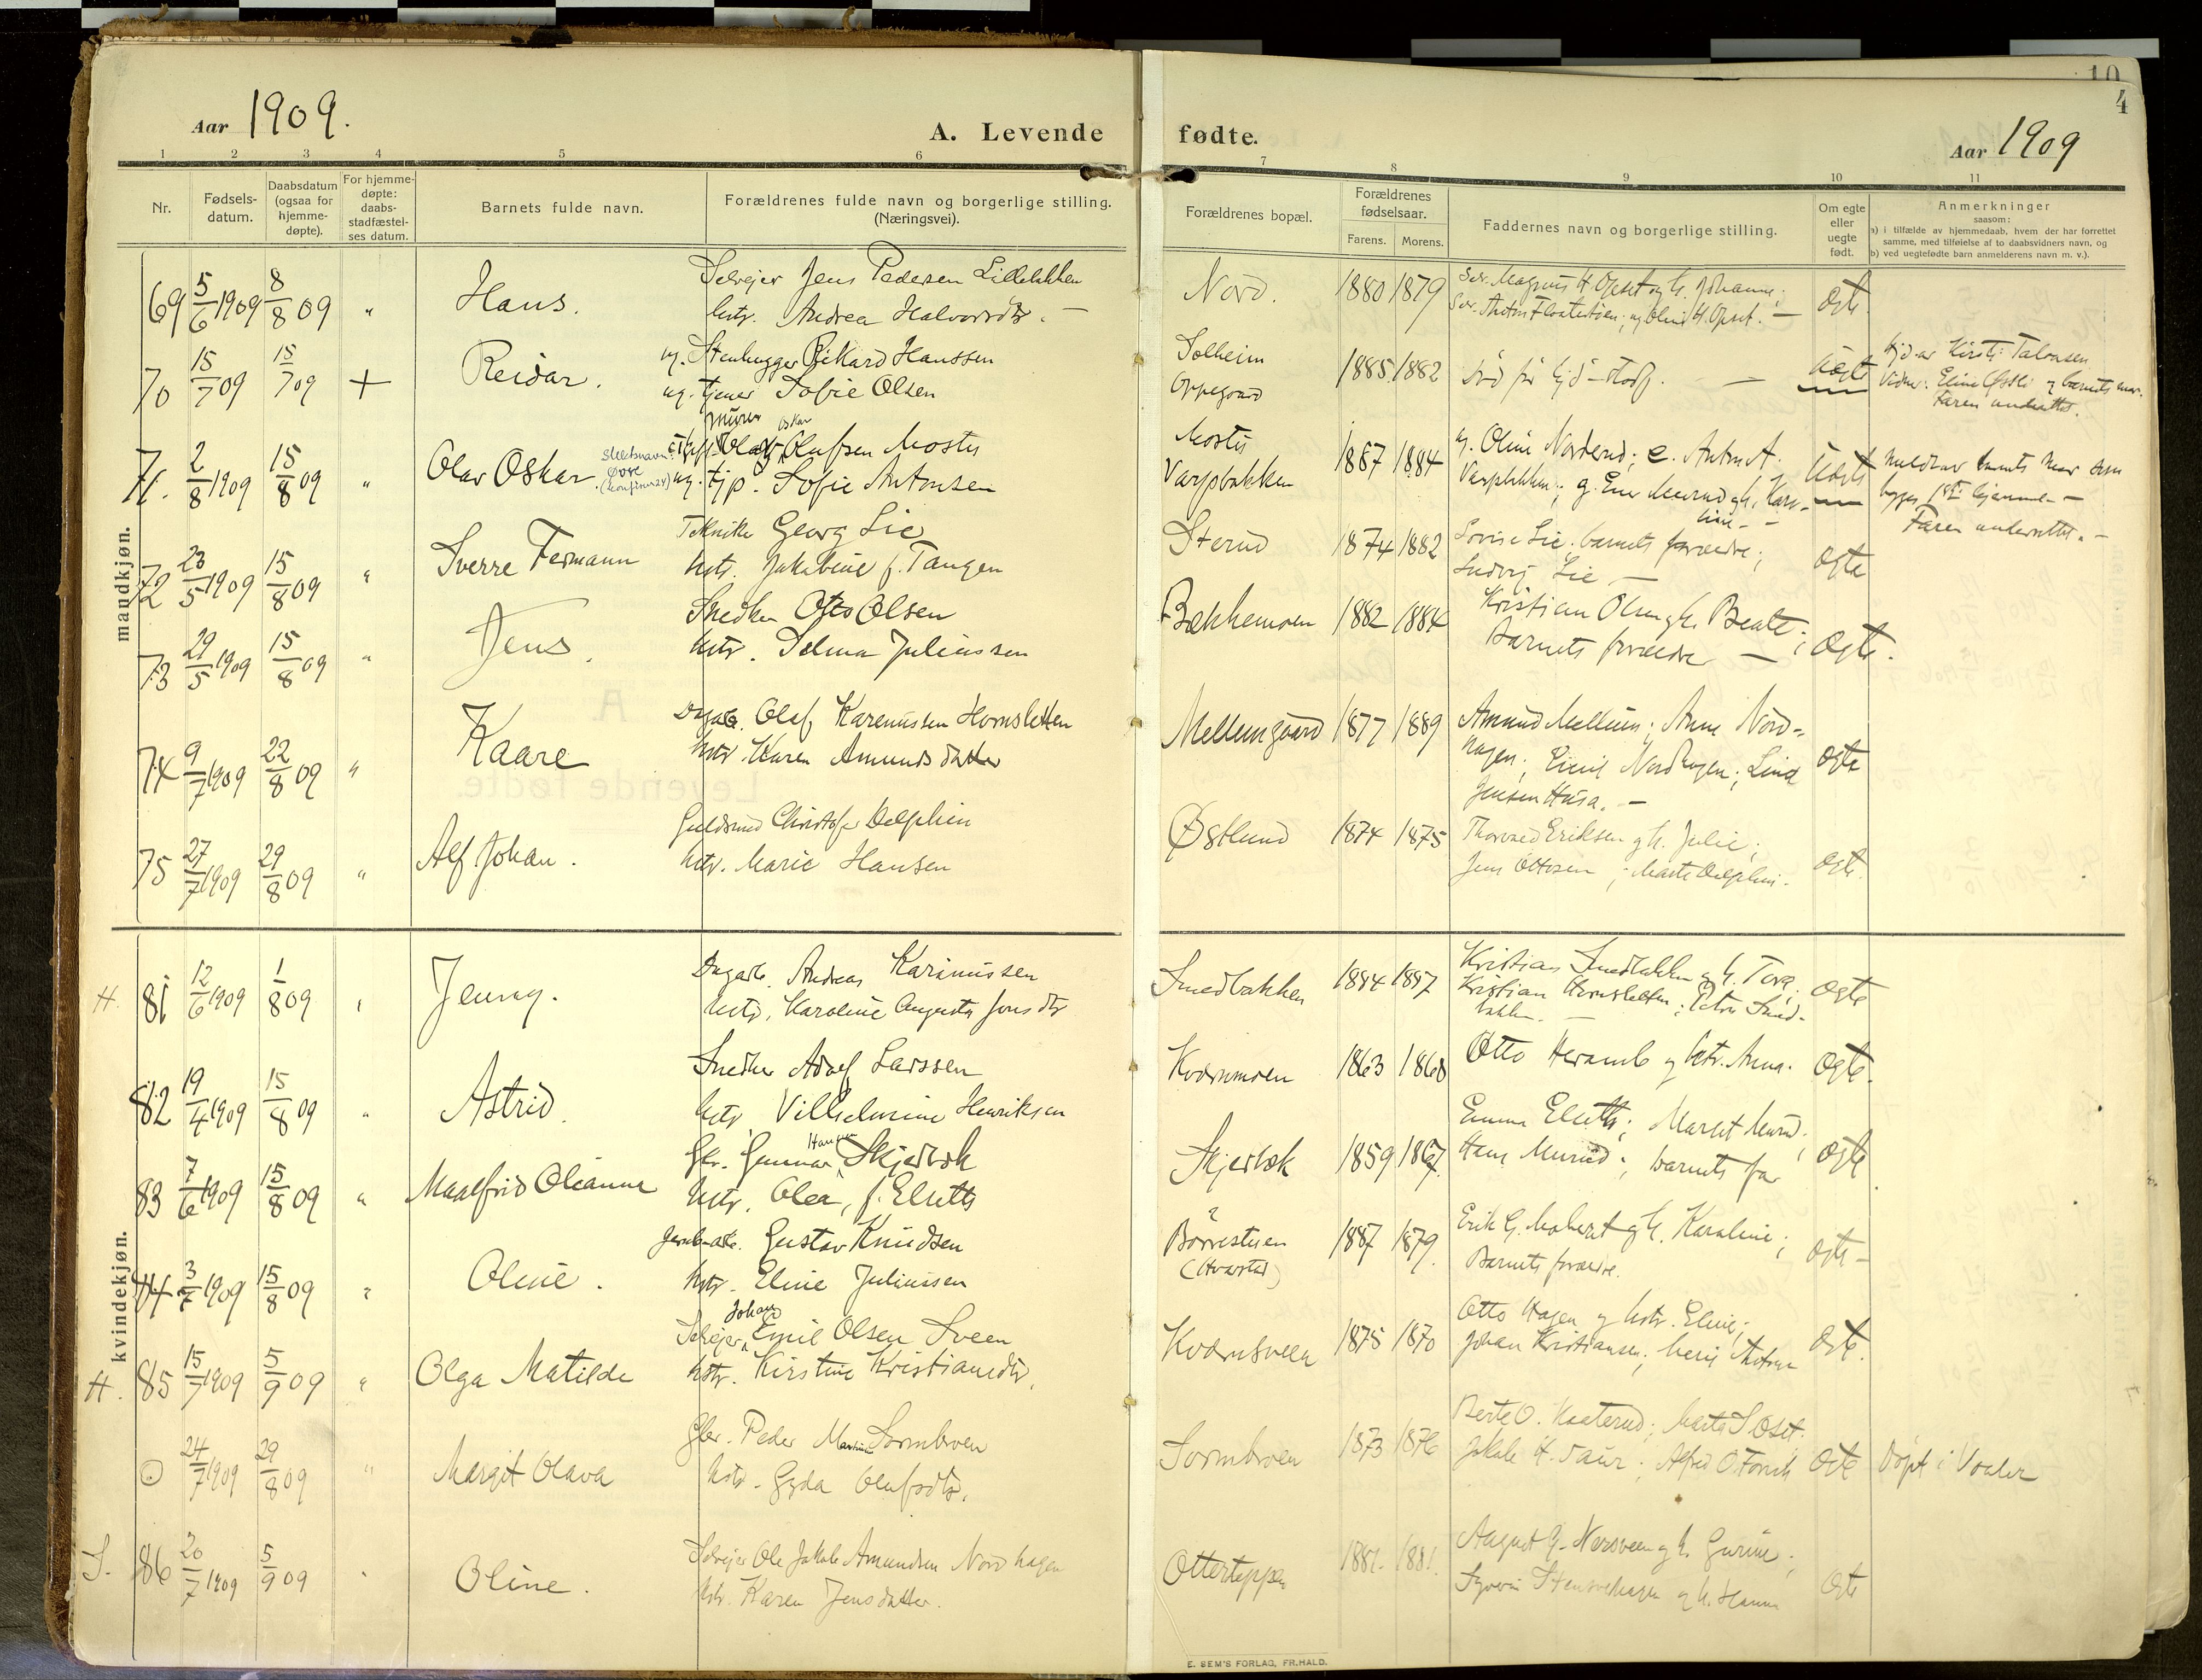 10
4
Aar 1909.
A. Levende
fødte.
Aar 1909
1 2 3 4 5 6 7 8 9 10 11
Nr.
Fødsels-
datum.
Daabsdatum
(ogsaa for
hjemme-
døpte).
For hjemme-
døpte:
daabs-
stadfæstel-
ses datum.
Barnets fulde navn.
Forældrenes fulde navn og borgerlige stilling.
(Næringsvei).
Forældrenes bopæl.
Forældrenes
fødselsaar.
Farens. Morens.
Faddernes navn og borgerlige stilling.
Om egte
eller
uegte
født.
Anmerkninger
saasom:
a) i tilfælde av hjemmedaab, hvem der har forrettet
samme, med tilføielse af to daabsvidners navn, og
b) ved uegtefødte barn anmelderens navn m. v.).
mandkjøn.
69 5/6 1909 8/8 09 " Hans.
Selveier Jens Pedersen Lillebakken
hstr. Andrea Halvorsdtr. —
Nord. 1880 1879
Selv. Magnus H. Opset og h. Johanne;
egte
70 15/7 09 15/7 09 + Reidar.
ug. Stenhugger Rikard Hanssen
ug. tjener Sofie Olsen
Solheim
Oppegaard
1885 1882
død før hjd-stadf. —
Uegte
hjd av Kirsti Talonsen
Faren underrettet.
71. 2/8 1909 15/8 09 " Olav Oskar.
Slektsnavn:
Øvre
(konfirm 24)
murer Oskar
Olaf Olufsen Mostu
ug. tjp. Sofie Antonsen
Mostu
Varpbakken
1887 1884
g. Oline Norderud; e. Anton A.
Varpbakken;
Uegte
Faren underrettet. —
72 23/5 1909 15/8 09 " Sverre Fermann
Tekniker Georg Lie
hstr. Jakobine f. Tangen
Sterud 1874 1882
Lovise Lie; barnets forældre;
Ludvig Lie —
egte
73 29/5 1909 15/8 09 " Jens.
Snedker Otto Olsen
hstr. Selma Juliussen
Bækkemoen 1882 1884
Kristian Olsen og h. Beate;
Barnets forældre —
egte.
74 9/7 1909 22/8 09 " Kaare
Dagarb. Olaf Karenussen Hornsletten
hstr. Karen Amundsdatter
Mellemgaard 1877 1889
Amund Mellem; Anne Nord-
hagen; Emil Nordhagen; Lina
Jensen Husa. —
egte
75 27/7 1909 29/8 09 " Alf Johan.
Guldsmed Christofer Delphin
hstr. Marie Hansen
Østlund 1874 1875
Thorvald Eriksen og h. Julie;
Jens Ottosen; Marte Delphin.
egte.
kvindekjøn.
H. 81 12/6 1909 1/8 09 " Jenny.
Dagarb. Andreas Karinussen
hstr. Karoline Augusta Jonsdtr
Smedbakken 1884 1887
Kristian Smedbakken og h. Tora;
Kristian Hornsletten; Petra Smed-
bakken. —
egte
82 19/4 1909 15/8 09 " Astrid.
Snedker Adolf Larssen
hstr. Vilhelmine Henriksen
Kværnmoen 1863 1868
Otto Heramb og hstr. Anna.
egte.
83 7/6 1909 15/8 09 " Maalfrid Oleanna
Gbr. Gunnar Hansen Skjerbæk
hstr. Olea, f. Elsetts
Skjerbæk 1859 1867.
Emma Elsetts; Margit Murud;
Hans Murud; barnets far
egte
84 3/7 1909 15/8 09 " Oline.
Jernbanearb. Gustav Knudsen
hstr. Eline Juliussen
Børrestuen
(Kvarstad)
1887 1879.
Erik G. Moberet og h. Karoline;
Barnets forældre.
egte —
H. 85 15/7 1909 5/9 09 " Olga Matilde
Johan
Selveier Emil Olsen Sveen
hstr. Kirstine Kristiansdtr.
Kværnsveen 1875 1870
Otto Hagen og hstr. Eline;
Johan Kristiansen;
egte.
24/7 1909 29/8 09 " Margit Olava
Gbr. Peder Martinus Sormbroen
hstr. Gyda Olufsdtr.
Sormbroen 1873 1876
egte
Døpt i Vaaler
S. 86 20/7 1909 5/9 09 " Oline.
Selveier Ole Jakob Amundsen Nordhagen
hstr. Karen Jensdatter.
Otterteppen 1881. 1881.
August G. Nersveen og h. Gurine;
egte
E. SEM'S FORLAG, FR.HALD.